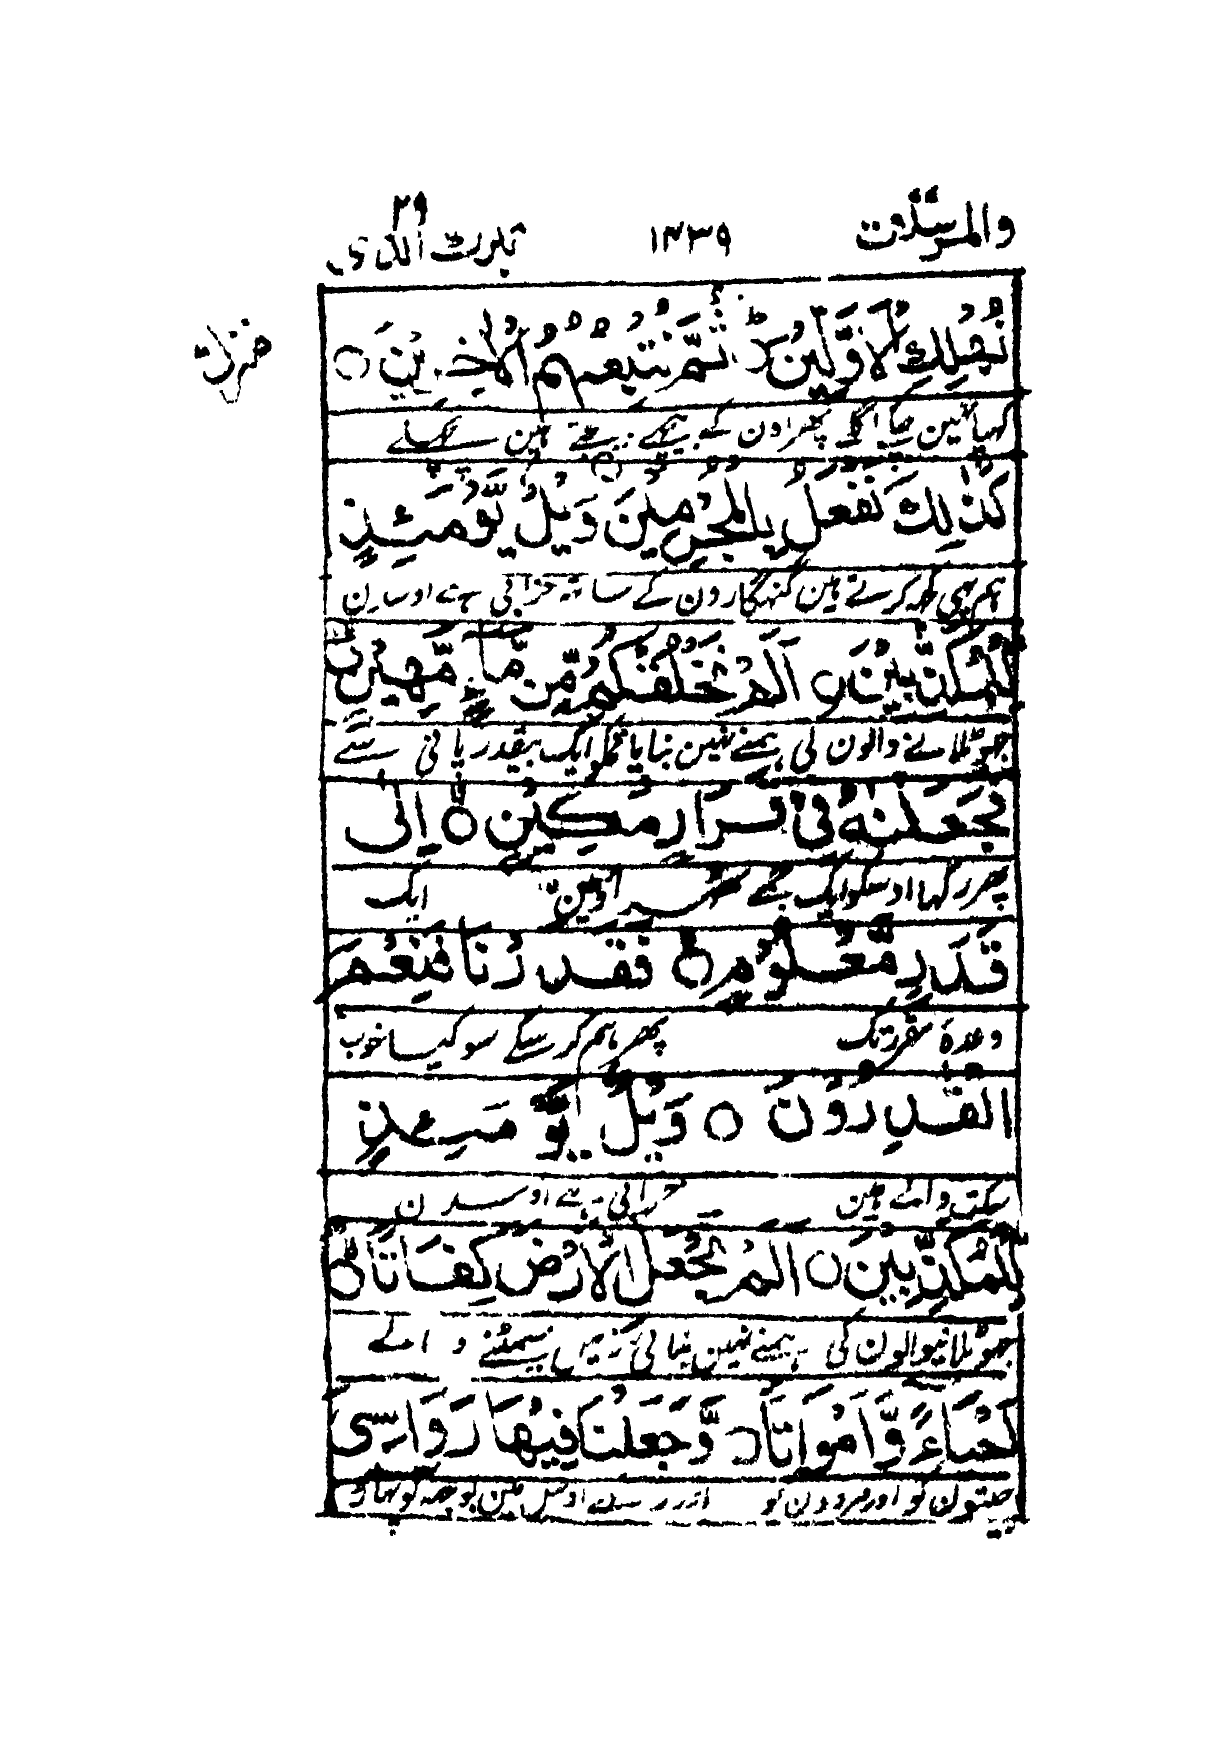 والمرسلت ١٤٣٩ تبرك الذي ٢٩
نُهْلِكِ الْاَوَّلِيْنَ ثُمَّ نُتْبِعُهُمُ الْاٰخِرِيْنَ ○
کہپا نہین چکے اگلے پھر اون کے پیچھے بہیجتے ہین پچھلے
كَذٰلِكَ نَفْعَلُ بِالْمُجْرِمِيْنَ ○ وَيْلٌ يَّوْمَئِذٍ
ہم یہی کچھہ کرتے ہین گنہگارون کے ساتہ خرابی ہے اوسدن
لِّلْمُكَذِّبِيْنَ ○ اَلَمْ نَخْلُقْكُّمْ مِّنْ مَّآءٍ مَّهِيْنٍ ○
جھوٹلانے والون کی ہمنے نہین بنایا تمکو ایک بیقدر پانی سے
فَجَعَلْنٰهُ فِيْ قَرَارٍ مَّكِيْنٍ ○ اِلٰى
پھر رکہا اوسکو ایک جمے ٹھہراؤ مین ایک
قَدَرٍ مَّعْلُوْمٍ ○ فَقَدَرْنَا فَنِعْمَ
وعدہ مقرر تک پھر ہم کر سکے سو کیسا خوب
الْقٰدِرُوْنَ ○ وَيْلٌ يَّوْمَئِذٍ
سکت والے ہین خرابی ہے اوسدن
لِّلْمُكَذِّبِيْنَ ○ اَلَمْ نَجْعَلِ الْاَرْضَ كِفَاتًا ○
جھوٹلانیوالون کی ہمنے نہین بنائی زمین سمٹنے والے
اَحْيَآءً وَّاَمْوَاتًا ○ وَّجَعَلْنَا فِيْهَا رَوَاسِيَ
جیتون کو اور مردون کو اور رکھے اوس مین بوجھہ کو پہاڑ